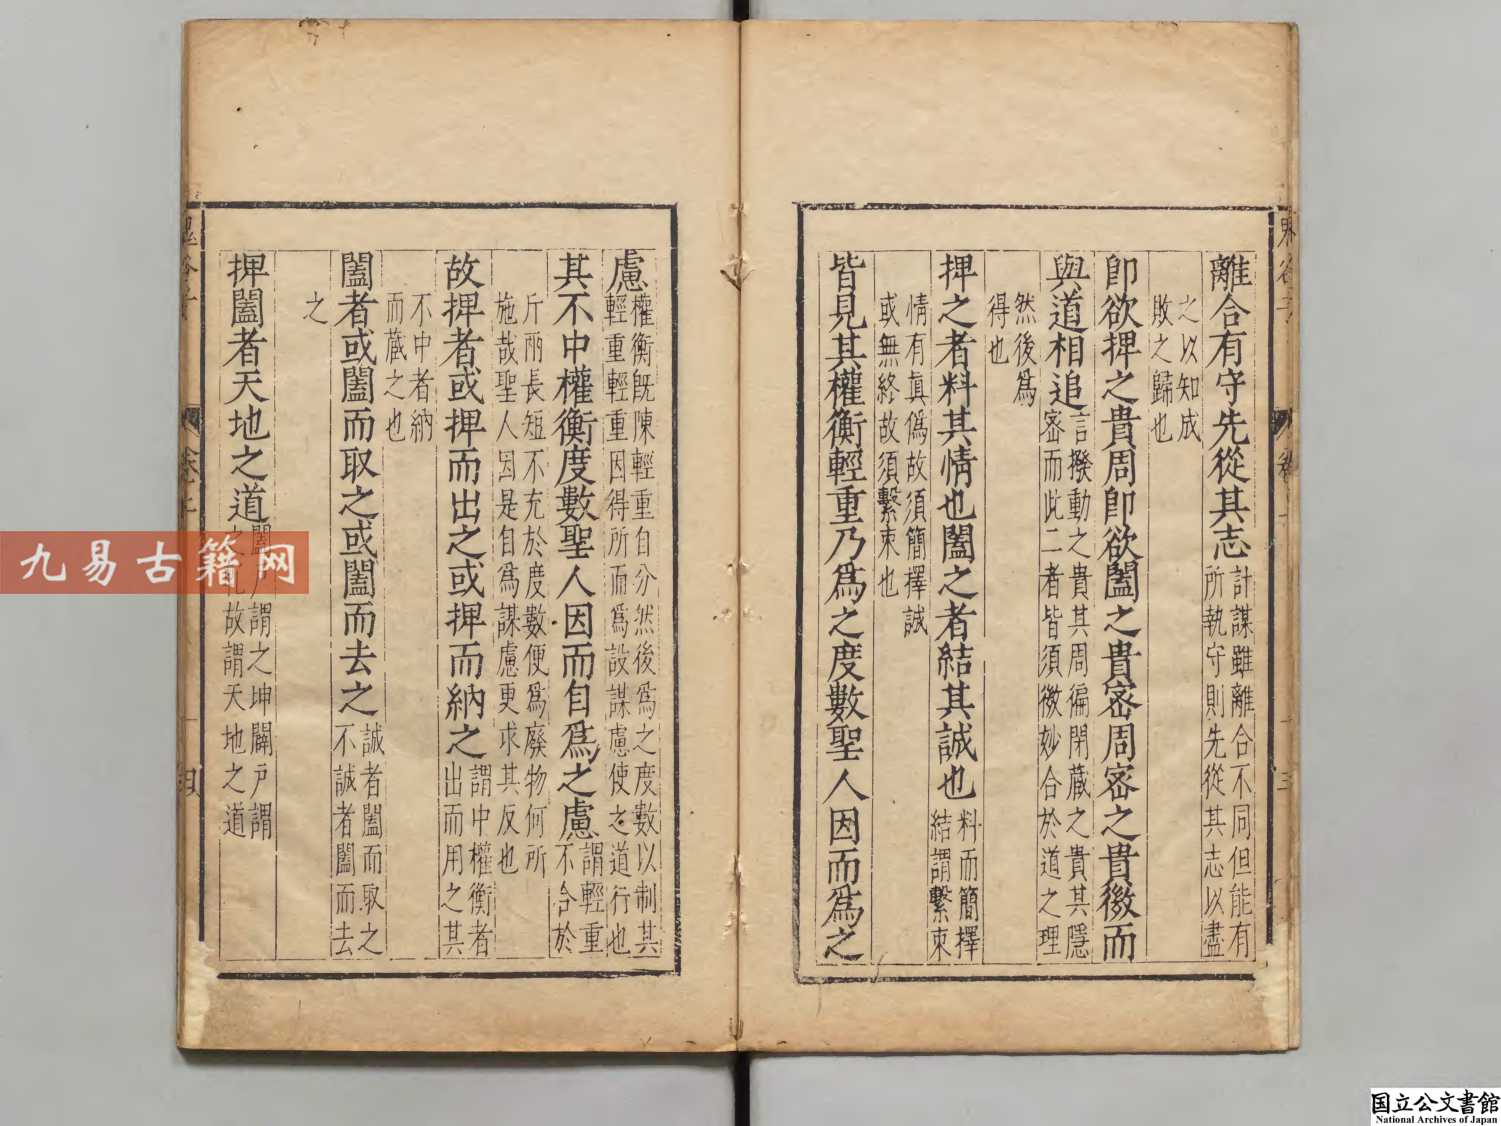 離合有守先從其志
計謀雖離合不同但能有
所執守則先從其志以盡
之以知成
敗之歸也
即欲捭之貴周即欲闔之貴密周密之貴微而
與道相追
言撥動之貴其周徧閉藏之貴其隱
密而此二者皆須微妙合於道之理
然後爲
得也
捭之者料其情也闔之者結其誠也
料而簡擇
結謂繫束
情有眞僞故須簡擇誠
或無終故須繫束也
皆見其權衡輕重乃爲之度數聖人因而爲之
慮
權衡旣陳輕重自分然後爲之度數以制其
輕重輕重因得所而爲設謀慮使之道行也
其不中權衡度數聖人因而自爲之慮
謂輕重
不合於
斤兩長短不充於度數便爲廢物何所
施哉聖人因是自爲謀慮更求其反也
故捭者或捭而出之或捭而納之
謂中權衡者
出而用之其
不中者納
而藏之也
闔者或闔而取之或闔而去之
誠者闔而取之
不誠者闔而去
之
捭闔者天地之道
闔戶謂之坤闢戶謂
之乾故謂天地之道
四
九易古籍网
国立公文書館
National Archives of Japan